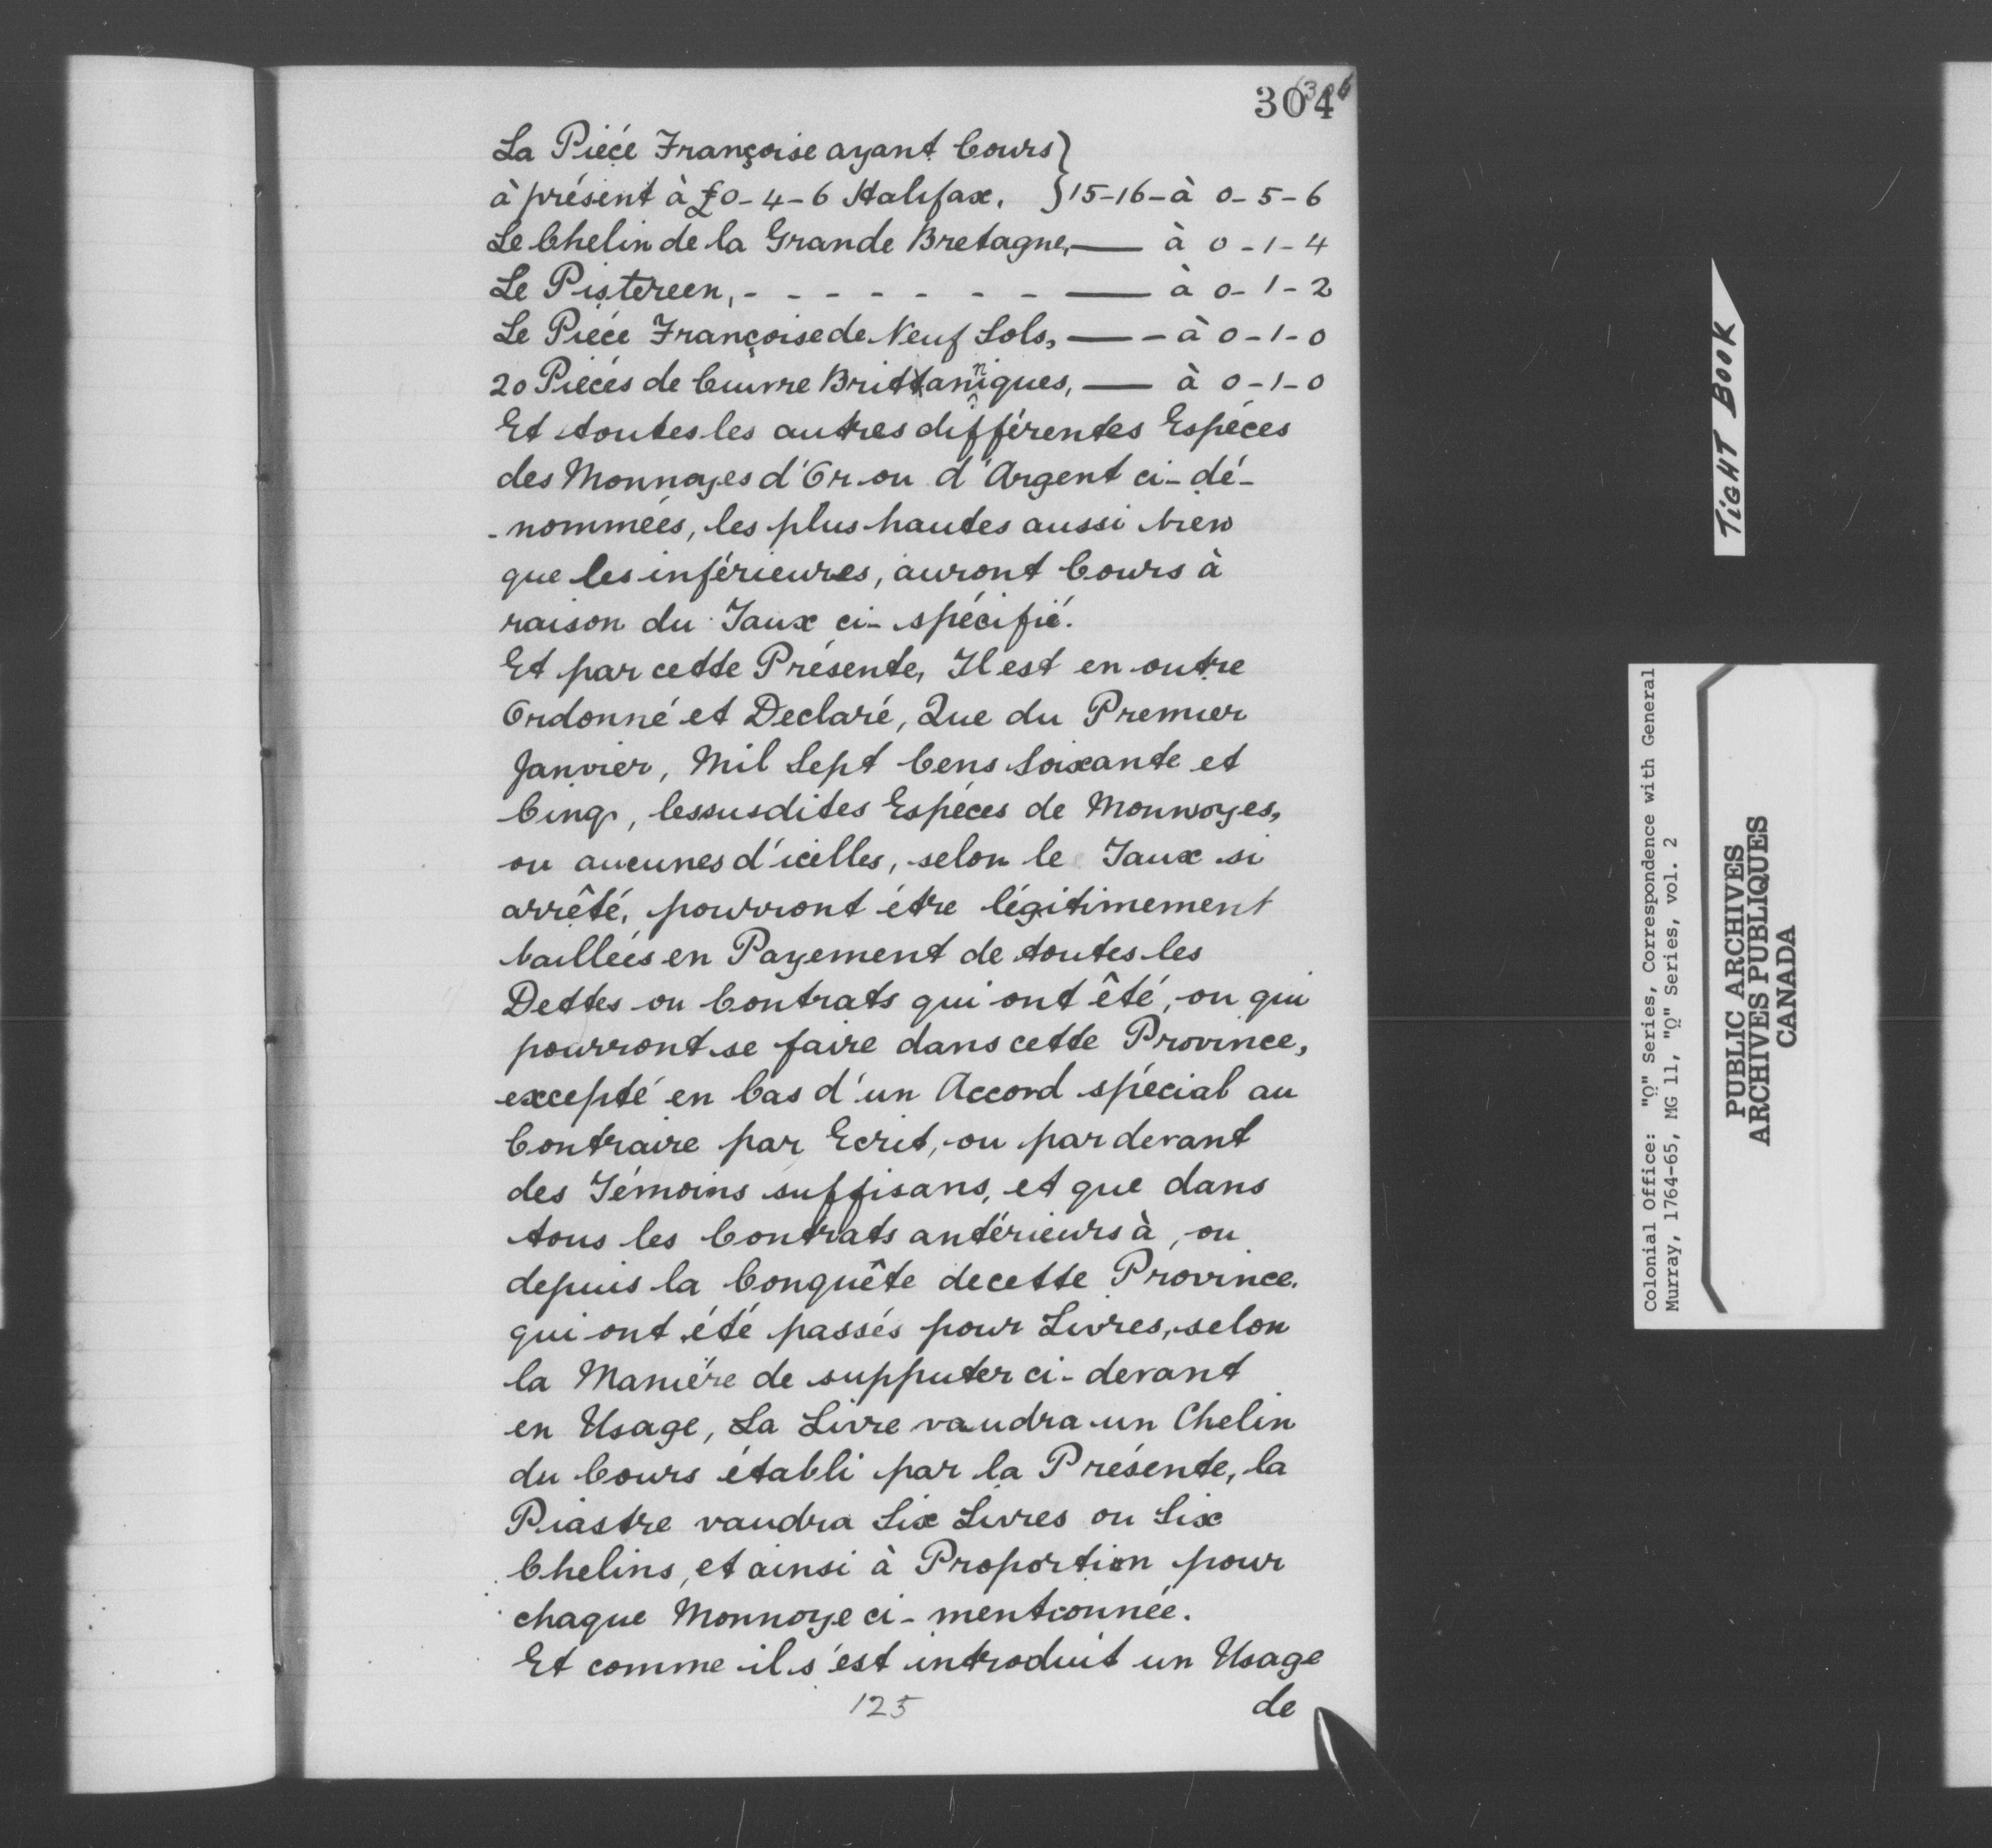 304
La Piéce Françoise ayant Cours }
à présent à £0-4-6 Halifax. } 15-16-à 0-5-6
Le Chelin de la Grande Bretagne, — à 0-1-4
Le Pistereen, - - - - - - - — à 0-1-2
Le Piéce Françoise de Neuf Sols, — - à 0-1-0
20 Piéces de Cuivre Brittanniques, — à 0-1-0
Et toutes les autres différentes Espéces
des Monnoyes d'Or ou d'Argent ci-dé-
-nommées, les plus hautes aussi bien
que les inférieures, auront Cours à
raison du Taux ci-spécifié.
Et par cette Présente, Il est en outre
Ordonné et Declaré, Que du Premier
Janvier, Mil Sept Cens Soixante et
Cinq, les susdites Espéces de Monnoyes,
ou aucunes d'icelles, selon le Taux si
arrêté, pourront étre légitimement
baillées en Payement de toutes les
Dettes ou Contrats qui ont êté, ou qui
pourront se faire dans cette Province,
excepté en Cas d'un Accord spécial au
Contraire par Ecrit, ou par devant
des Témoins suffisans, et que dans
tous les Contrats antérieurs à, ou
depuis la Conquête de cette Province.
qui ont été passés pour Livres, selon
la Maniére de supputer ci-devant
en Usage, La Livre vaudra un Chelin
du Cours établi par la Présente, la
Piastre vaudra Six Livres ou Six
Chelins, et ainsi à Proportion pour
chaque Monnoye ci-mentionnée.
Et comme il s'est introduit un Usage
de
125
TIGHT BOOK
Colonial Office: "Q" Series, Correspondence with General
Murray, 1764-65, MG 11, "Q" Series, vol. 2
PUBLIC ARCHIVES
ARCHIVES PUBLIQUES
CANADA